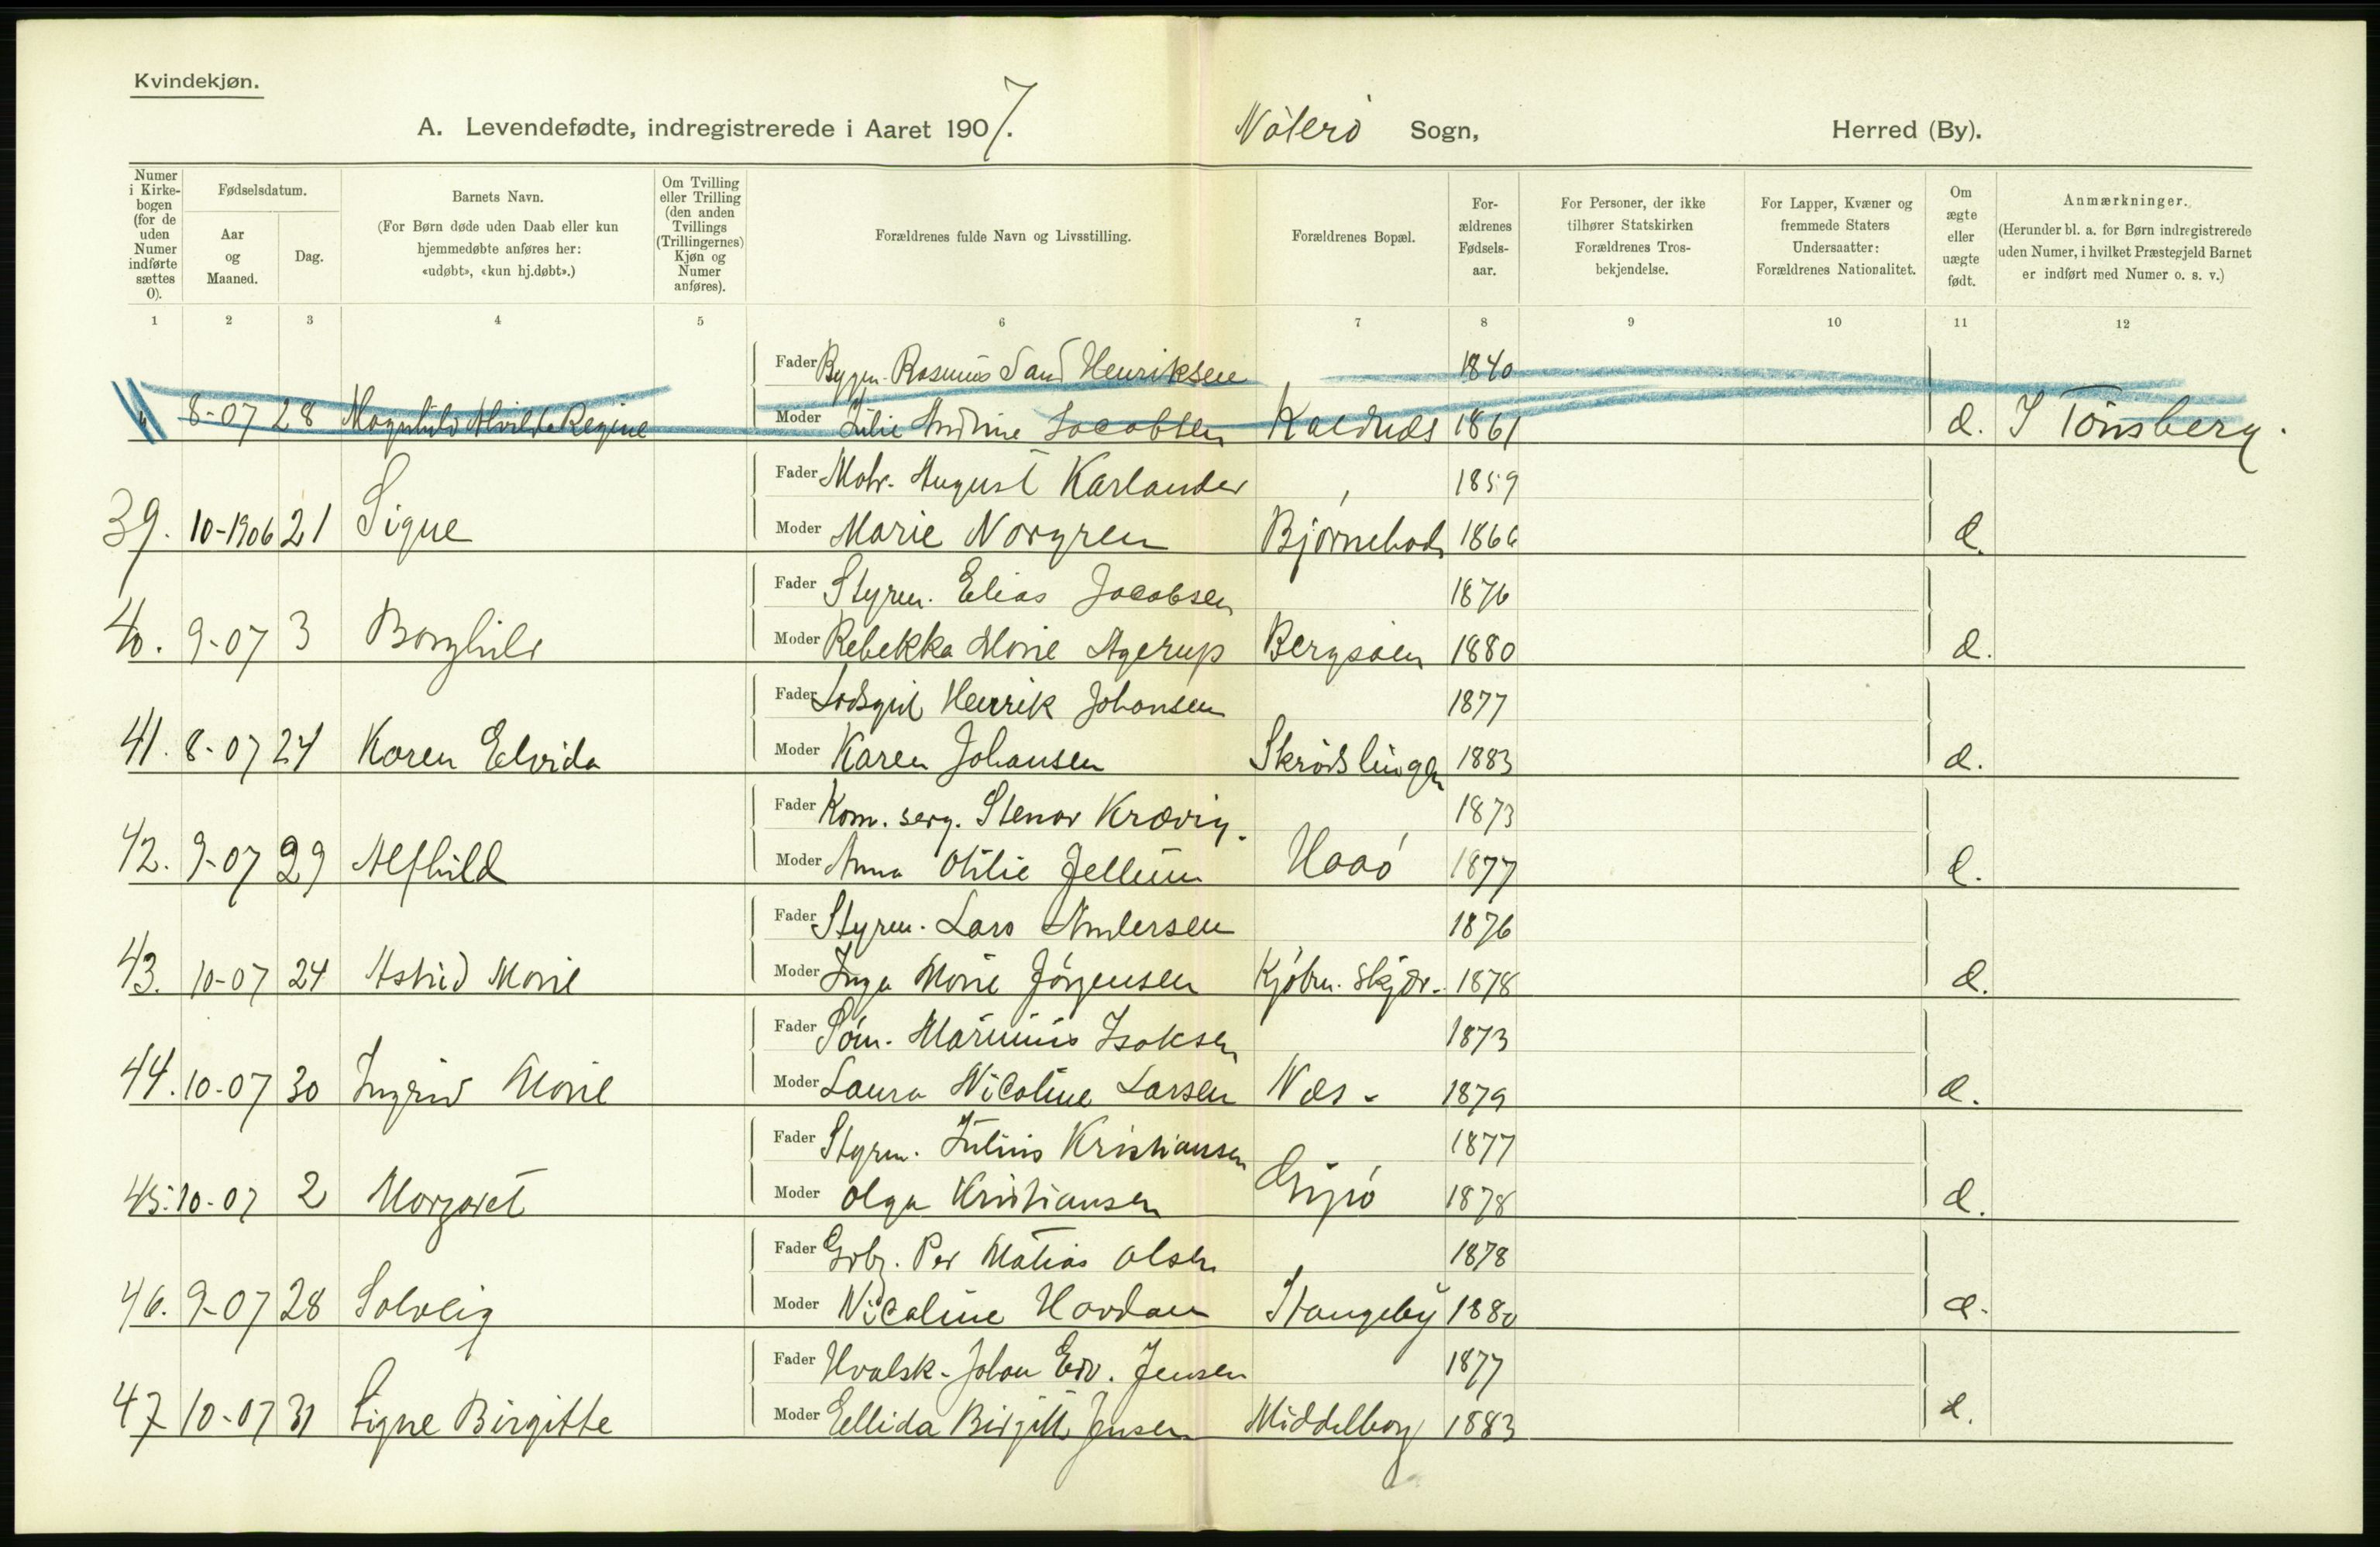 Kvindekjøn.
A. Levendefødte, indregistrerede i Aaret 1907. Nøterø Sogn, Herred (By).
Numer i Kirke-bogen (for de uden Numer indførte sættes 0).
Fødselsdatum.
Aar og Maaned.
Dag.
Barnets Navn.
(For Børn døde uden Daab eller kun hjemmedøbte anføres her: «udøbt», «kun hj.døbt».)
Om Tvilling eller Trilling (den anden Tvillings (Trillingernes) Kjøn og Numer anføres).
Forældrenes fulde Navn og Livsstilling.
Forældrenes Bopæl.
For-ældrenes Fødsels-aar.
For Personer, der ikke tilhører Statskirken Forældrenes Tros-bekjendelse.
For Lapper, Kvæner og fremmede Staters Undersaatter: Forældrenes Nationalitet.
Om ægte eller uægte født.
Anmærkninger.
(Herunder bl. a. for Børn indregistrerede uden Numer, i hvilket Præstegjeld Barnet er indført med Numer o. s. v.)
1 2 3 4 5 6 7 8 9 10 11 12
Fader Bygm. Rasmus Sand Henriksen 1840
" 8-07 28 Magnhild Alvilde Regine Moder Julie Andrine Jacobsen Kaldnes 1861 æ. I Tønsberg.
Fader Matr. August Karlander 1859
39. 10-1906 21 Signe Moder Marie Norgren Bjørnebod 1866 æ.
Fader Styrm. Elias Jacobsen 1876
40. 9-07 3 Borghild Moder Rebekka Marie Agerup Bergsøen 1880 æ.
Fader Lodsgut Henrik Johansen 1877
41. 8-07 24 Karen Elvida Moder Karen Johansen 1883 æ.
Fader Kom. serg. Stenar Krævig. 1873
42. 9-07 29 Alfhild Moder Anna Otilie Jellum Haaø 1877 æ.
Fader Styrm. Lars Andersen 1876
43. 10-07 24 Astrid Marie Moder Inga Marie Jørgensen Kjøbm. skjær. 1878 æ.
Fader Søm. Marinius Isaksen 1873
44. 10-07 30 Ingrid Marie Moder Laura Nicoline Larsen Næs - 1879 æ.
Fader Styrm. Julius Kristiansen 1877
45. 10-07 2 Margaret Moder Olga Kristiansen 1878 æ.
Fader Grbr. Per Matias Olsen 1878
46. 9-07 28 Solveig Moder Nicoline Havdan Stangeby 1880 æ.
Fader Hvalsk. Johan Edv. Jensen 1877
47 10-07 31 Signe Birgitte Moder Ellida Birgitte Jensen Middelborg 1883 æ.